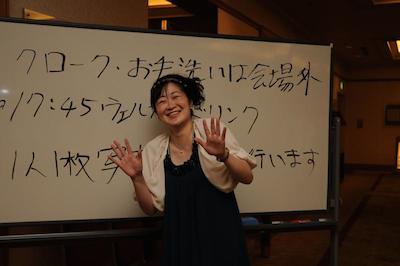 クローク・お手洗いは会場外
17:45 ウェル リンク
1人1枚 行います